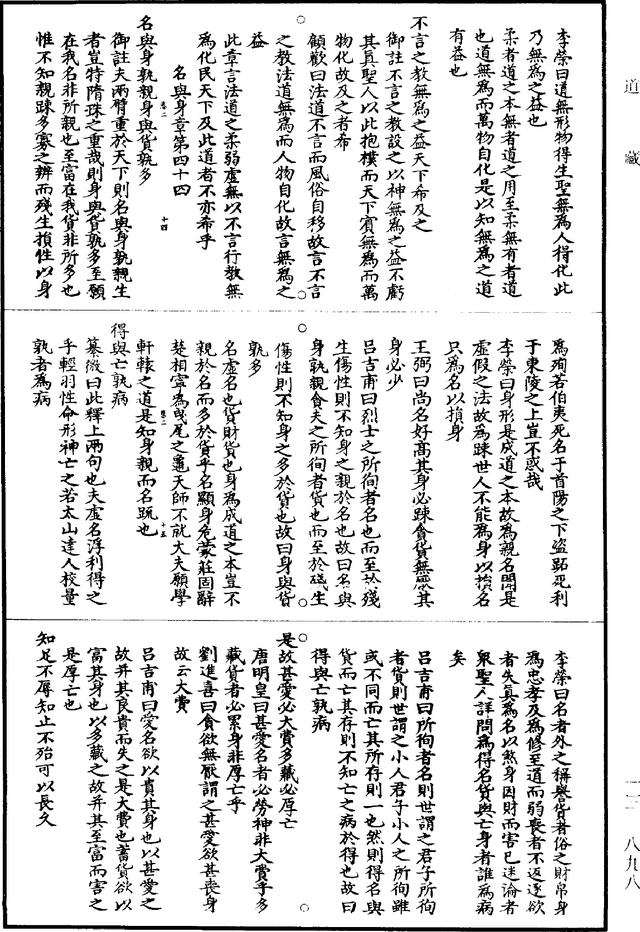 道藏
一三—八九八
李榮曰道無形物得生聖無為人得化此
乃無為之益也
柔者道之本無者道之用至柔無有者道
也道無為而萬物自化是以知無為之道
有益也
不言之教無為之益天下希及之
御註不言之教設之以神無為之益不虧
其真聖人以此抱樸而天下賓無為而萬
物化故及之者希
顧歡曰法道不言而風俗自移故言不言
之教法道無為而人物自化故言無為之
益
此章言法道之柔弱虛無以不言行教無
為化民天下及此道者不亦希乎
名與身章第四十四
卷二 十四
名與身孰親身與貨孰多
御註夫兩臂重於天下則名與身孰親生
者豈特隋珠之重哉則身與貨孰多至願
在我名非所親也至富在我貨非所多也
惟不知親踈多寡之辨而殘生損性以身
為殉若伯夷死名于首陽之下盜跖死利
于東陵之上豈不惑哉
李榮曰身形是成道之本故為親名聞是
虛假之法故為踈世人不能為身以損名
只為名以損身
王弼曰尚名好高其身必踈貪貨無厭其
身必少
呂吉甫曰烈士之所徇者名也而至於殘
生傷性則不知身之親於名也故曰名與
身孰親貪夫之所徇者貨也而至於殘生
傷性則不知身之多於貨也故曰身與貨
孰多
名虛名也貨財貨也身為成道之本豈不
親於名而多於貨乎名顯身危蒙莊固辭
楚相寧為曳尾之龜天師不就大夫願學
卷二 十五
軒轅之道是知身親而名踈也
得與亡孰病
纂微曰此釋上兩句也夫虛名浮利得之
乎輕羽性命形神亡之若太山達人校量
孰者為病
李榮曰名者外之稱舉貨者俗之財帛身
為忠孝及為修至道而弱喪者不返逐欲
者失真為名以煞身因財而害已迷淪者
眾聖人詳問為得名貨與亡身者誰為病
矣
呂吉甫曰所徇者名則世謂之君子所徇
者貨則世謂之小人君子小人之所徇雖
或不同而亡其所存則一也然則得名與
貨而亡其存則不知亡之病於得也故曰
得與亡孰病
是故甚愛必大費多藏必厚亡
唐明皇曰甚愛名者必勞神非大費乎多
藏貨者必累身非厚亡乎
劉進喜曰貪欲無厭謂之甚愛欲甚喪身
故云大費
呂吉甫曰愛名欲以貴其身也以甚愛之
故并其良貴而失之是大費也蓄貨欲以
富其身也以多藏之故并其至富而害之
是厚亡也
知足不辱知止不殆可以長久